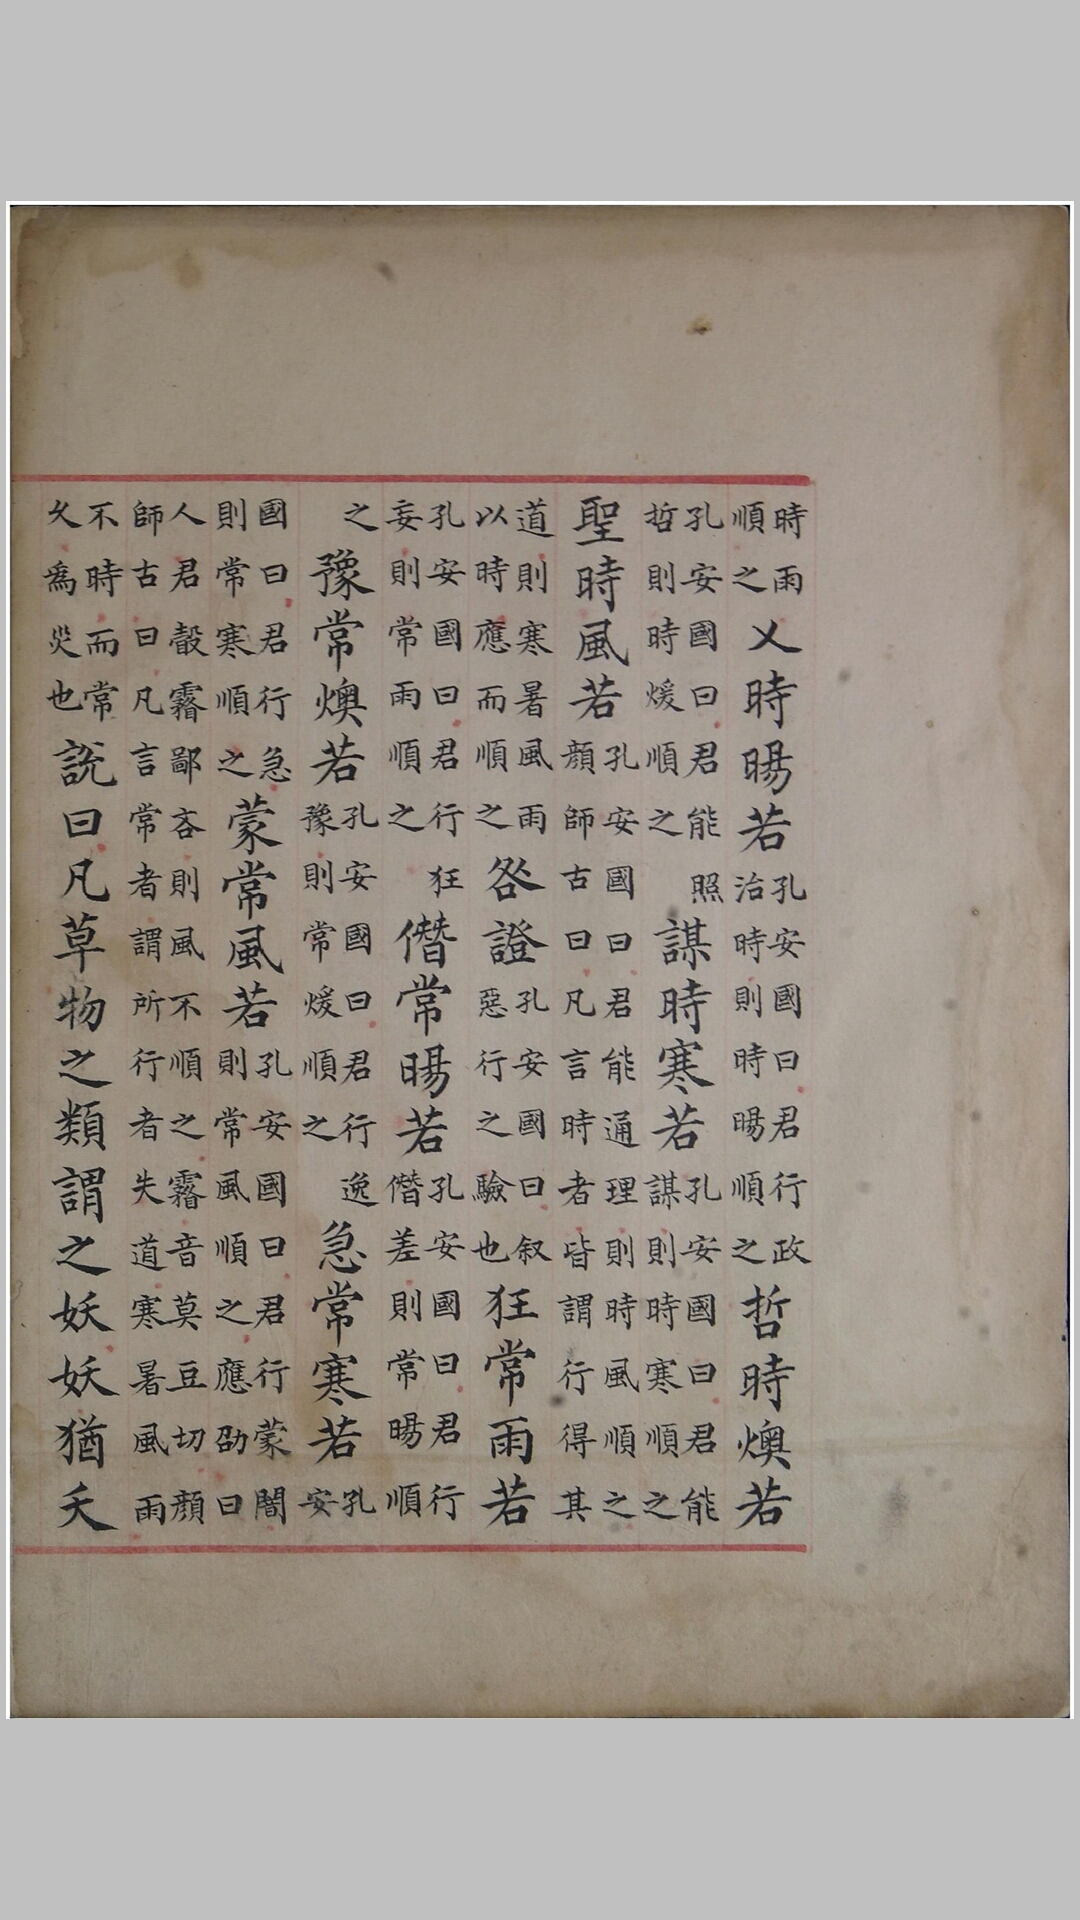 時雨順之乂時暘若孔安國曰君行政治時則時暘順之哲時燠若
孔安國曰君能照哲則時煖順之謀時寒若孔安國曰君能謀則時寒順之
聖時風若孔安國曰君能通理則時風順之顏師古曰凡言時者皆謂行得其
道則寒暑風雨以時應而順之咎證孔安國曰叙惡行之驗也狂常雨若
孔安國曰君行狂妄則常雨順之僭常暘若孔安國曰君行僭差則常暘順
之豫常燠若孔安國曰君行逸豫則常煖順之急常寒若孔安
國曰君行急則常寒順之蒙常風若孔安國曰君行蒙闇則常風順之應劭曰
人君瞉霿鄙吝則風不順之霿音莫豆切顏師古曰凡言常者謂所行者失道寒暑風雨
不時而常久爲災也說曰凡草物之類謂之妖妖猶夭